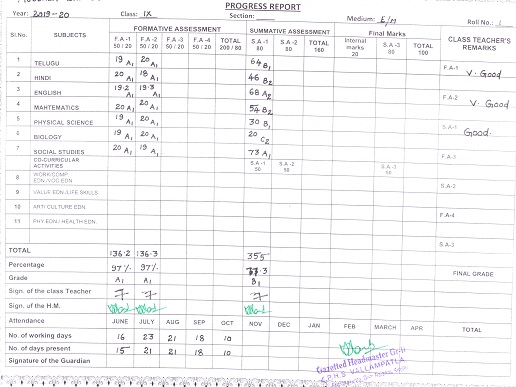 PROGRESS REPORT
Year: 2019-20 Class: IX Section: Medium: E/M Roll No.:
Sl.No. SUBJECTS FORMATIVE ASSESSMENT SUMMATIVE ASSESSMENT Final Marks CLASS TEACHER'S REMARKS
F.A-1 50/20 F.A-2 50/20 F.A-3 50/20 F.A-4 50/20 TOTAL 200/80 S.A-1 80 S.A-2 80 TOTAL 160 Internal marks 20 S.A-3 80 TOTAL 100
1 TELUGU 19 A1 20 A1 64 B1 F.A-1 V. Good
2 HINDI 20 A1 18 A1 46 B2
3 ENGLISH 19.2 A1 19.3 A1 68 A2 F.A-2 V. Good
4 MAHTEMATICS 20 A1 20 A1 54 B2
5 PHYSICAL SCIENCE 19 A1 20 A1 30 B1 S.A-1 Good.
6 BIOLOGY 19 A1 20 A1 20 C2
7 SOCIAL STUDIES 20 A1 19 A1 73 A1 F.A-3
CO-CURRICULAR ACTIVITIES S.A-1 50 S.A-2 50 S.A-3 50
8 WORK/COMP. EDN./VOC EDN. S.A-2
9 VALUE EDN./LIFE SKILLS
10 ART/ CULTURE EDN. F.A-4
11 PHY.EDN / HEALTH EDN.
S.A-3
TOTAL 136.2 136.3 355
Percentage 97% 97% FINAL GRADE
Grade A1 A1 B1
Sign. of the class Teacher
Sign. of the H.M.
Attendance JUNE JULY AUG SEP OCT NOV DEC JAN FEB MARCH APR TOTAL
No. of working days 16 23 21 18 10
No. of days present 15 21 21 18 10
Signature of the Guardian
Gazetted Headmaster Gr-II
Z.P.H.S VALLAMPATLA